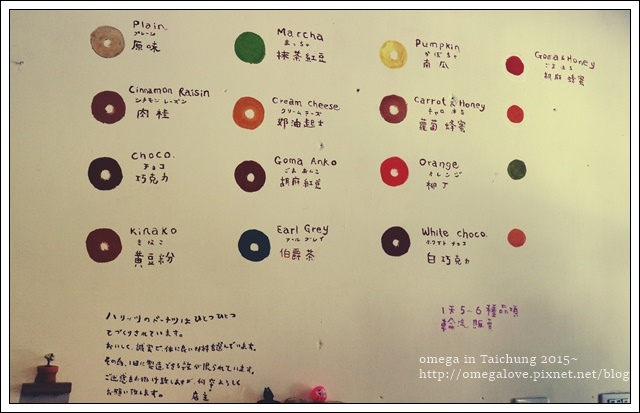 Plain
プレーン
原味
Marcha
まっちゃ
抹茶紅豆
Pumpkin
かぼちゃ
南瓜
Goma & Honey
胡麻蜂蜜
Cinnamon Raisin
シナモンレーズン
肉桂
Cream cheese
クリームチーズ
奶油起士
Carrot & Honey
蘿蔔蜂蜜
Choco.
チョコ
巧克力
Goma Anko
ごま あんこ
胡麻紅豆
Orange
オレンジ
柳丁
Kinako
きなこ
黃豆粉
Earl Grey
アールグレイ
伯爵茶
White choco.
ホワイト チョコ
白巧克力
ハリッツのドーナツは ひとつひとつ
てづくりされています。
おいしく、誠実で体に良い材料を選んでいます。
その為、1日に製造できる数が限られています。
ご迷惑をお掛け致しますが、何卒よろしく
お願い致します。 店主
1天5~6種品項
輪流販賣
omega in Taichung 2015~
http://omegalove.pixnet.net/blog